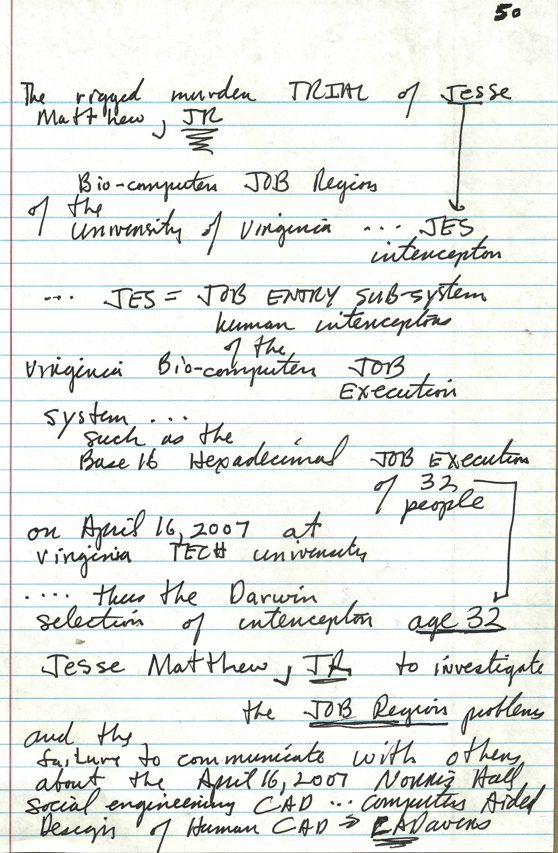 50
The rigged murder TRIAL of Jesse
Matthew, JR
Bio-computer JOB Region
of the
University of Virginia .... JES
interceptor
... JES = JOB ENTRY SUB-system
human interceptors
of the
Virginia Bio-computer JOB
Execution
system ...
such as the
Base 16 Hexadecimal JOB Execution
of 32
people
on April 16, 2007 at
Virginia TECH university
.... thus the Darwin
selection of interceptor age 32
Jesse Matthew, JR to investigate
the JOB Region problems
and the
failure to communicate with others
about the April 16, 2007 Norris Hall
social engineering CAD ... computer Aided
Designs of Human CAD → CADavers